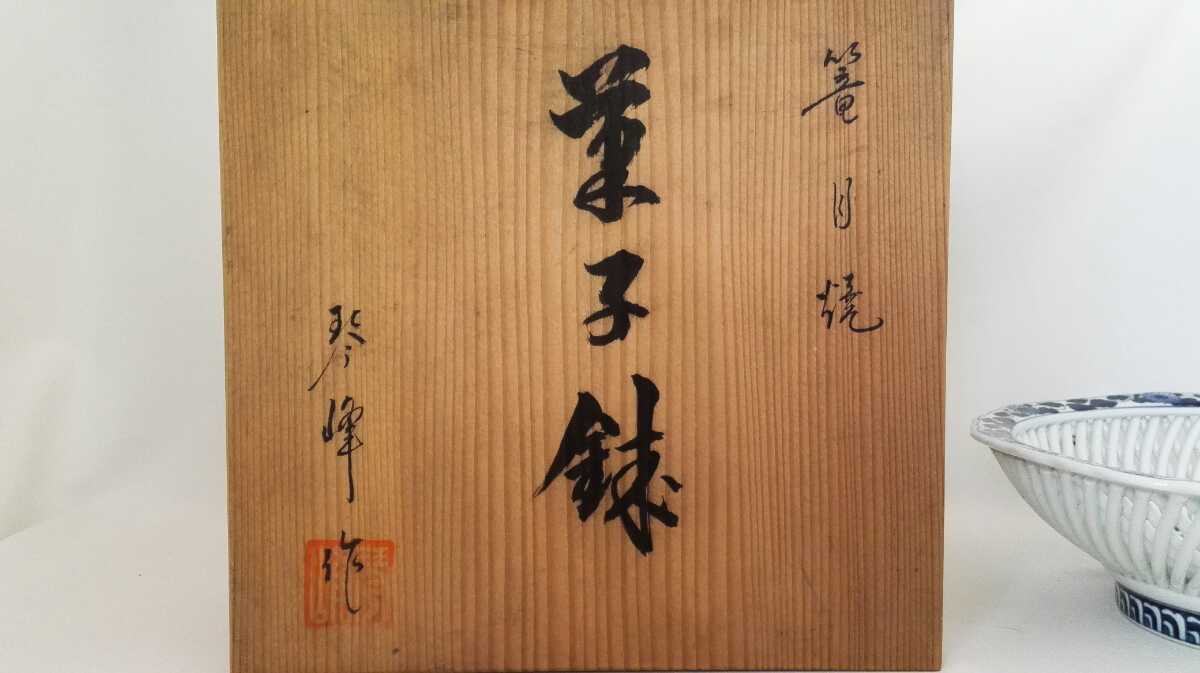 篭目焼
菓子鉢
琴峰作